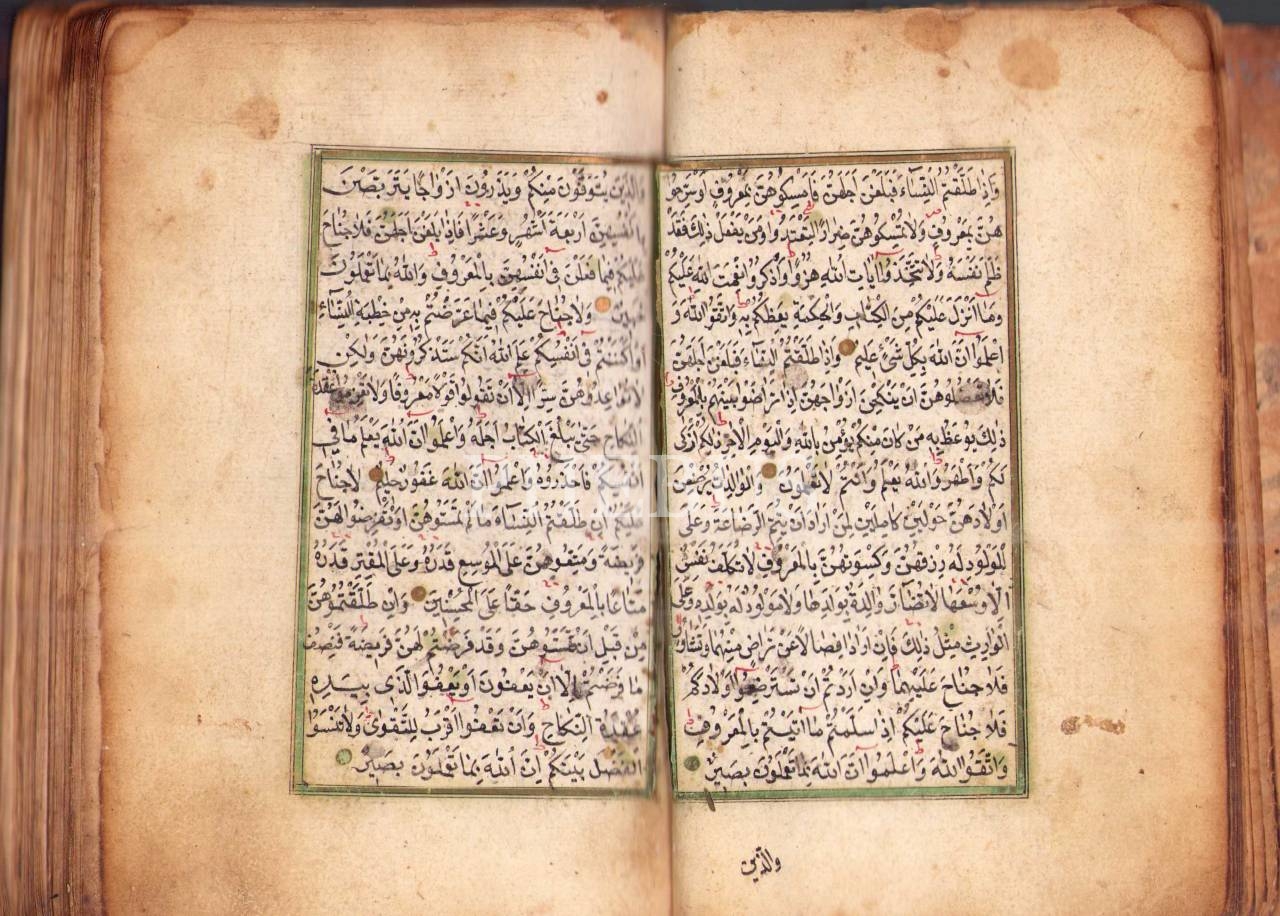 وَاِذَا طَلَّقْتُمُ النِّسَاءَ فَبَلَغْنَ اَجَلَهُنَّ فَاَمْسِكُوهُنَّ بِمَعْرُوفٍ اَوْ سَرِّحُو
هُنَّ بِمَعْرُوفٍ وَلَا تُمْسِكُوهُنَّ ضِرَارًا لِتَعْتَدُوا وَمَنْ يَفْعَلْ ذٰلِكَ فَقَدْ
ظَلَمَ نَفْسَهُ وَلَا تَتَّخِذُوا اٰيَاتِ اللّٰهِ هُزُوًا وَاذْكُرُوا نِعْمَتَ اللّٰهِ عَلَيْكُمْ
وَمَا اَنْزَلَ عَلَيْكُمْ مِنَ الْكِتَابِ وَالْحِكْمَةِ يَعِظُكُمْ بِهِ وَاتَّقُوا اللّٰهَ وَ
اعْلَمُوا اَنَّ اللّٰهَ بِكُلِّ شَيْءٍ عَلِيمٌ وَاِذَا طَلَّقْتُمُ النِّسَاءَ فَبَلَغْنَ اَجَلَهُنَّ
فَلَا تَعْضُلُوهُنَّ اَنْ يَنْكِحْنَ اَزْوَاجَهُنَّ اِذَا تَرَاضَوْا بَيْنَهُمْ بِالْمَعْرُوفِ
ذٰلِكَ يُوعَظُ بِهِ مَنْ كَانَ مِنْكُمْ يُؤْمِنُ بِاللّٰهِ وَالْيَوْمِ الْاٰخِرِ ذٰلِكُمْ اَزْكٰى
لَكُمْ وَاَطْهَرُ وَاللّٰهُ يَعْلَمُ وَاَنْتُمْ لَا تَعْلَمُونَ وَالْوَالِدَاتُ يُرْضِعْنَ
اَوْلَادَهُنَّ حَوْلَيْنِ كَامِلَيْنِ لِمَنْ اَرَادَ اَنْ يُتِمَّ الرَّضَاعَةَ وَعَلَى
الْمَوْلُودِ لَهُ رِزْقُهُنَّ وَكِسْوَتُهُنَّ بِالْمَعْرُوفِ لَا تُكَلَّفُ نَفْسٌ
اِلَّا وُسْعَهَا لَا تُضَارَّ وَالِدَةٌ بِوَلَدِهَا وَلَا مَوْلُودٌ لَهُ بِوَلَدِهِ وَعَلَى
الْوَارِثِ مِثْلُ ذٰلِكَ فَاِنْ اَرَادَا فِصَالًا عَنْ تَرَاضٍ مِنْهُمَا وَتَشَاوُرٍ
فَلَا جُنَاحَ عَلَيْهِمَا وَاِنْ اَرَدْتُمْ اَنْ تَسْتَرْضِعُوا اَوْلَادَكُمْ
فَلَا جُنَاحَ عَلَيْكُمْ اِذَا سَلَّمْتُمْ مَا اٰتَيْتُمْ بِالْمَعْرُوفِ
وَاتَّقُوا اللّٰهَ وَاعْلَمُوا اَنَّ اللّٰهَ بِمَا تَعْمَلُونَ بَصِيرٌ
والذين
وَالَّذِينَ يُتَوَفَّوْنَ مِنْكُمْ وَيَذَرُونَ اَزْوَاجًا يَتَرَبَّصْنَ
بِاَنْفُسِهِنَّ اَرْبَعَةَ اَشْهُرٍ وَعَشْرًا فَاِذَا بَلَغْنَ اَجَلَهُنَّ فَلَا جُنَاحَ
عَلَيْكُمْ فِيمَا فَعَلْنَ فِي اَنْفُسِهِنَّ بِالْمَعْرُوفِ وَاللّٰهُ بِمَا تَعْمَلُونَ
خَبِيرٌ وَلَا جُنَاحَ عَلَيْكُمْ فِيمَا عَرَّضْتُمْ بِهِ مِنْ خِطْبَةِ النِّسَاءِ
اَوْ اَكْنَنْتُمْ فِي اَنْفُسِكُمْ عَلِمَ اللّٰهُ اَنَّكُمْ سَتَذْكُرُونَهُنَّ وَلٰكِنْ
لَا تُوَاعِدُوهُنَّ سِرًّا اِلَّا اَنْ تَقُولُوا قَوْلًا مَعْرُوفًا وَلَا تَعْزِمُوا عُقْدَةَ
النِّكَاحِ حَتّٰى يَبْلُغَ الْكِتَابُ اَجَلَهُ وَاعْلَمُوا اَنَّ اللّٰهَ يَعْلَمُ مَا فِي
اَنْفُسِكُمْ فَاحْذَرُوهُ وَاعْلَمُوا اَنَّ اللّٰهَ غَفُورٌ حَلِيمٌ لَا جُنَاحَ
عَلَيْكُمْ اِنْ طَلَّقْتُمُ النِّسَاءَ مَا لَمْ تَمَسُّوهُنَّ اَوْ تَفْرِضُوا لَهُنَّ
فَرِيضَةً وَمَتِّعُوهُنَّ عَلَى الْمُوسِعِ قَدَرُهُ وَعَلَى الْمُقْتِرِ قَدَرُهُ
مَتَاعًا بِالْمَعْرُوفِ حَقًّا عَلَى الْمُحْسِنِينَ وَاِنْ طَلَّقْتُمُوهُنَّ
مِنْ قَبْلِ اَنْ تَمَسُّوهُنَّ وَقَدْ فَرَضْتُمْ لَهُنَّ فَرِيضَةً فَنِصْفُ
مَا فَرَضْتُمْ اِلَّا اَنْ يَعْفُونَ اَوْ يَعْفُوَ الَّذِي بِيَدِهِ
عُقْدَةُ النِّكَاحِ وَاَنْ تَعْفُوا اَقْرَبُ لِلتَّقْوٰى وَلَا تَنْسَوُا
الْفَضْلَ بَيْنَكُمْ اِنَّ اللّٰهَ بِمَا تَعْمَلُونَ بَصِيرٌ